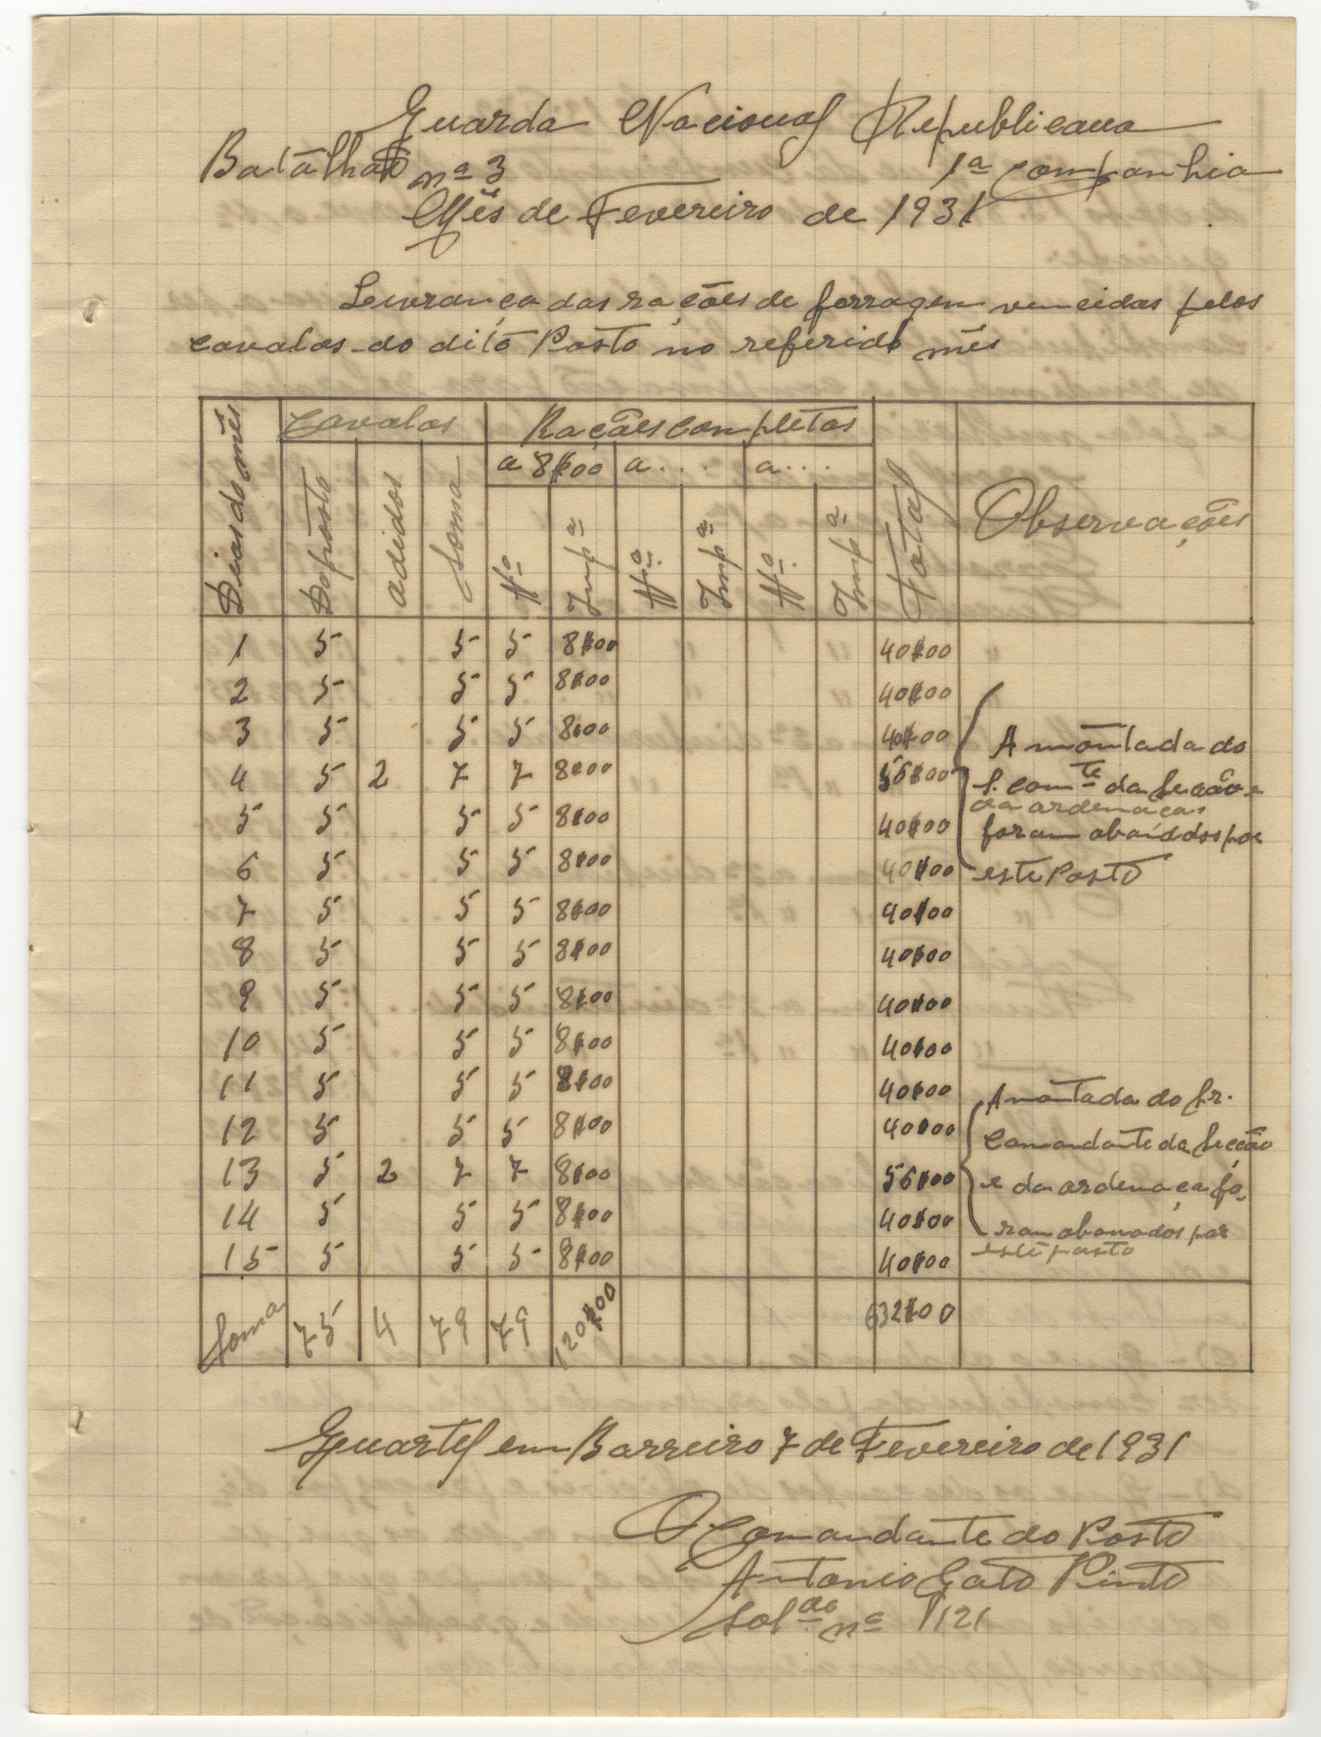 Guarda Nacional Republicana
Batalhão nº 3 1ª Companhia
Mês de Fevereiro de 1931
Livrança das rações de forragem vencidas pelos
cavalos do dito Posto no referido mês
Dias do mês Cavalos Rações completas Total Observações
a 8$00 a... a...
Do posto adidos Soma Nº Impª Nº Impª Nº Impª
1 5 5 5 8$00 40$00
2 5 5 5 8$00 40$00
3 5 5 5 8$00 40$00 A montada do
4 5 2 7 7 8$00 56$00 S. Comte da Secção e
da ordenaças
5 5 5 5 8$00 40$00 foram abonados por
6 5 5 5 8$00 40$00 este Posto
7 5 5 5 8$00 40$00
8 5 5 5 8$00 40$00
9 5 5 5 8$00 40$00
10 5 5 5 8$00 40$00
11 5 5 5 8$00 40$00 A montada do Sr.
12 5 5 5 8$00 40$00 Comandante da Secção
13 5 2 7 7 8$00 56$00 e da ordenaça fo-
14 5 5 5 8$00 40$00 ram abonados por
15 5 5 5 8$00 40$00 este posto
Soma 75 4 79 79 120$00 632$00
Quartel em Barreiro 7 de Fevereiro de 1931
O Comandante do Posto
Antonio Gato Pinto
Soldo nº 121